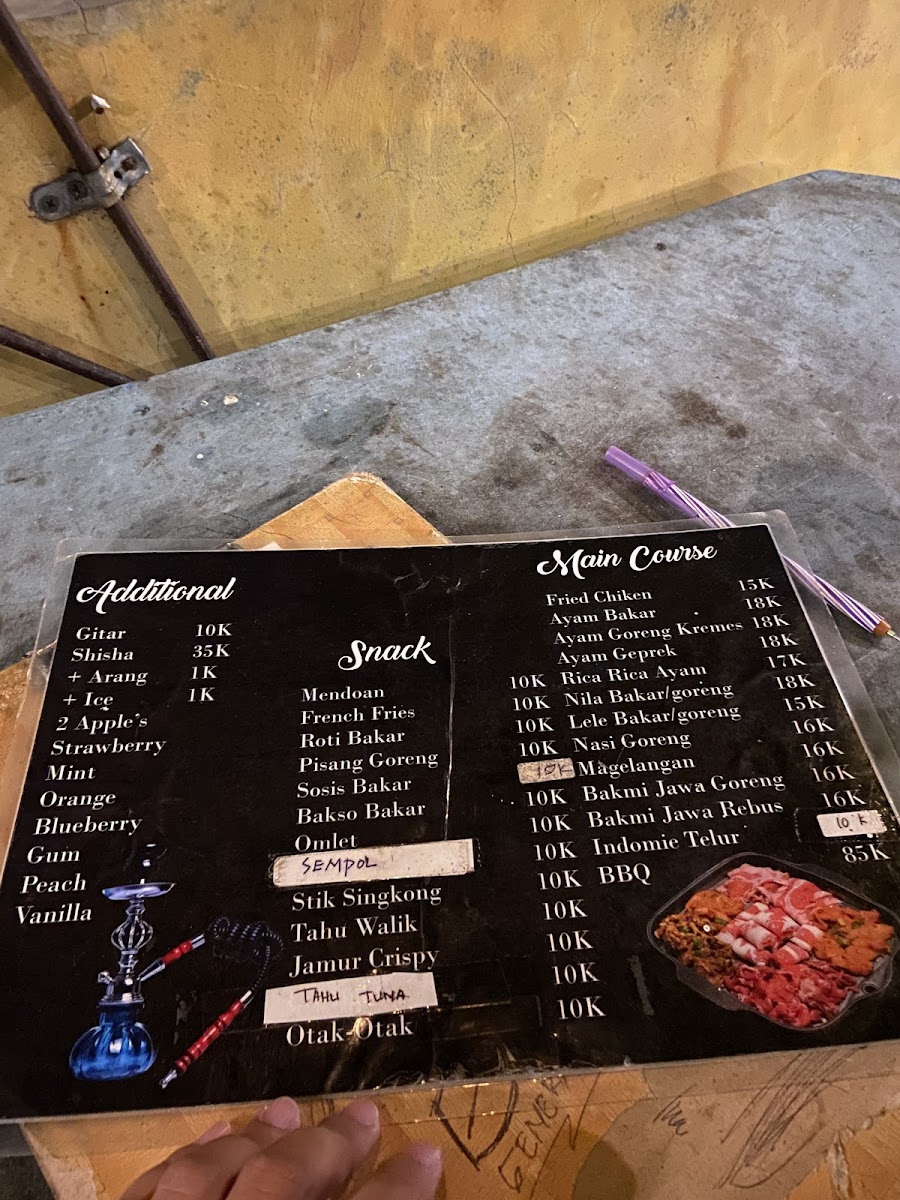 Additional
Gitar 10K
Shisha 35K
+ Arang 1K
+ Ice 1K
2 Apple's
Strawberry
Mint
Orange
Blueberry
Gum
Peach
Vanilla
Snack
Mendoan 10K
French Fries 10K
Roti Bakar 10K
Pisang Goreng 10K
Sosis Bakar 10K
Bakso Bakar 10K
Omlet 10K
SEMPOL 10K
Stik Singkong 10K
Tahu Walik 10K
Jamur Crispy 10K
TAHU TUNA 10K
Otak-Otak 10K
Main Course
Fried Chiken 15K
Ayam Bakar 18K
Ayam Goreng Kremes 18K
Ayam Geprek 18K
Rica Rica Ayam 17K
Nila Bakar/goreng 18K
Lele Bakar/goreng 15K
Nasi Goreng 16K
Magelangan 16K
Bakmi Jawa Goreng 16K
Bakmi Jawa Rebus 16K
Indomie Telur 10K
BBQ 85K